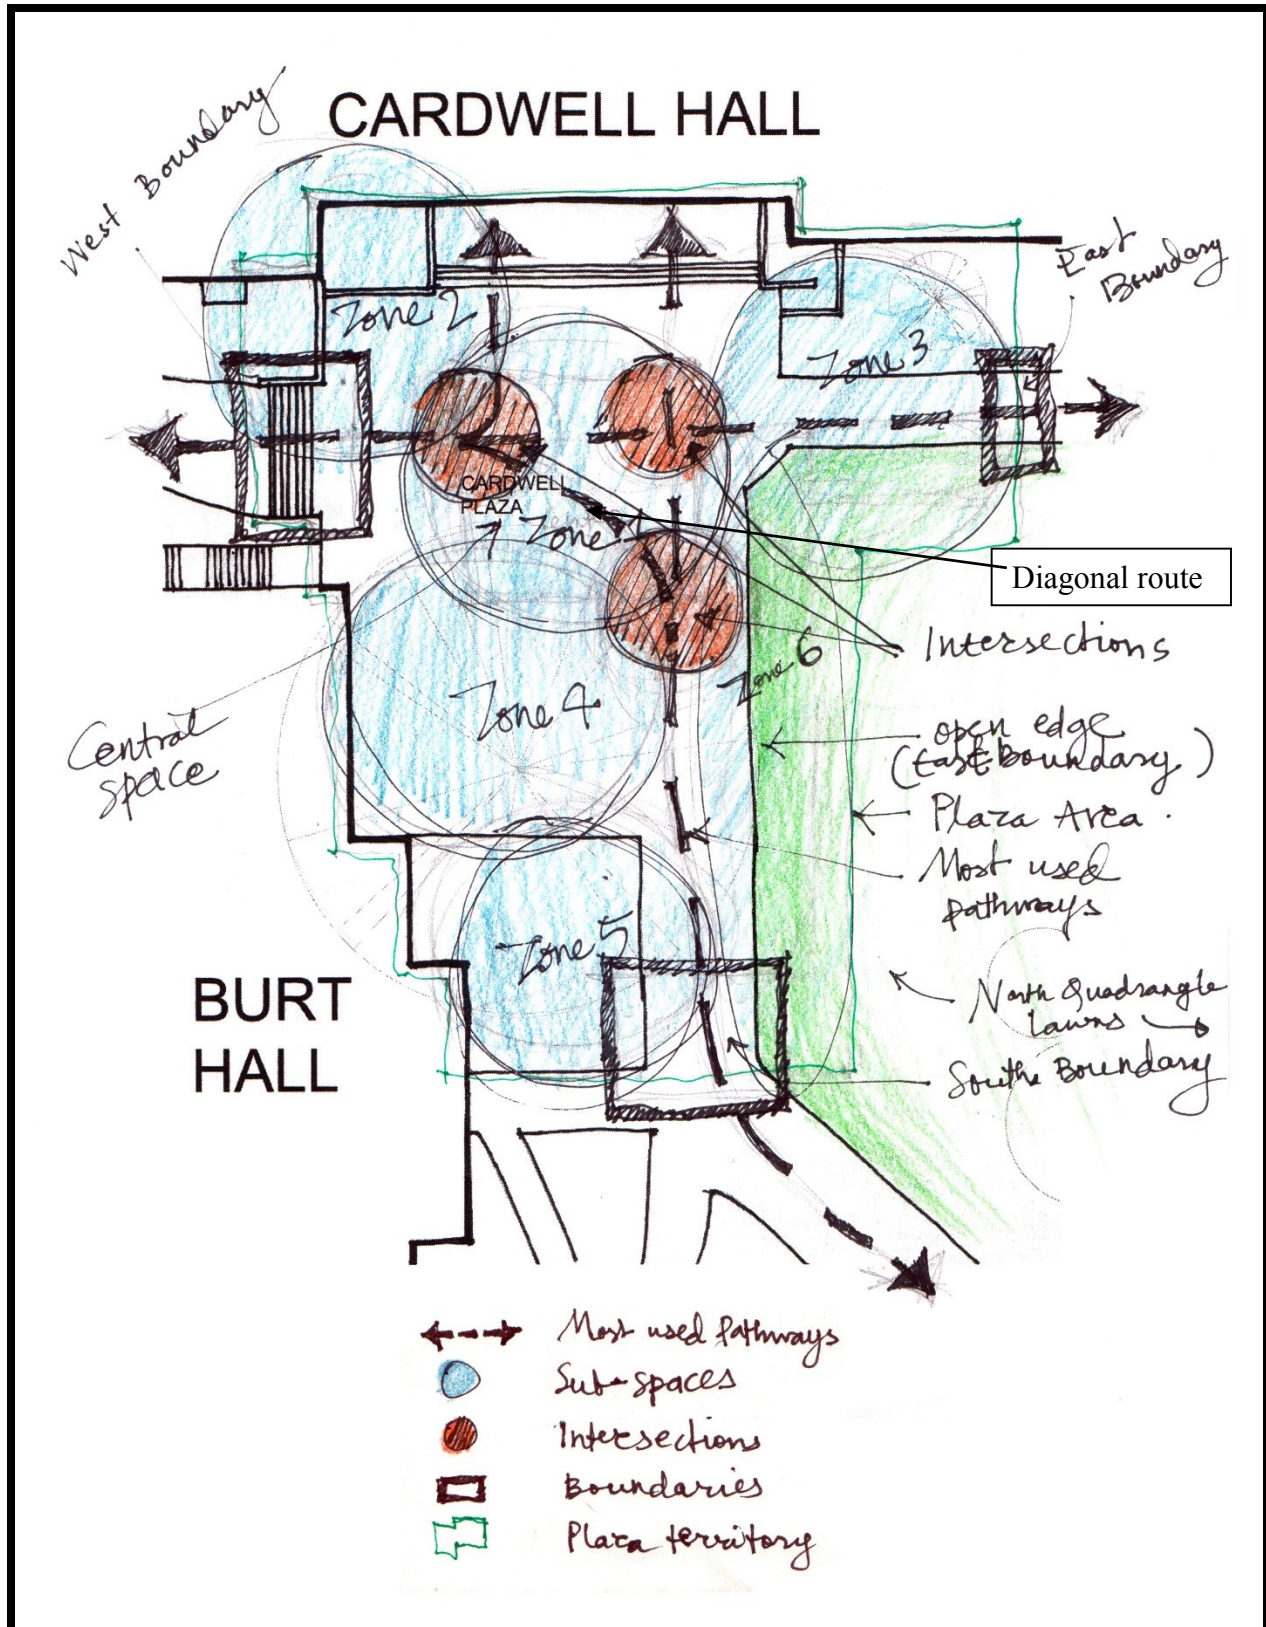 CARDWELL HALL
West Boundary
East
Boundary
Zone 2
Zone 3
CARDWELL
PLAZA
Zone 1
Diagonal route
Intersections
Zone 6
Zone 4
Central
space
open edge
(East Boundary)
Plaza Area .
Most used
pathways
Zone 5
BURT
HALL
North Quadrangle
Lawns
Southe Boundary
Most used Pathways
Sub-spaces
Intersections
Boundaries
Plaza territory